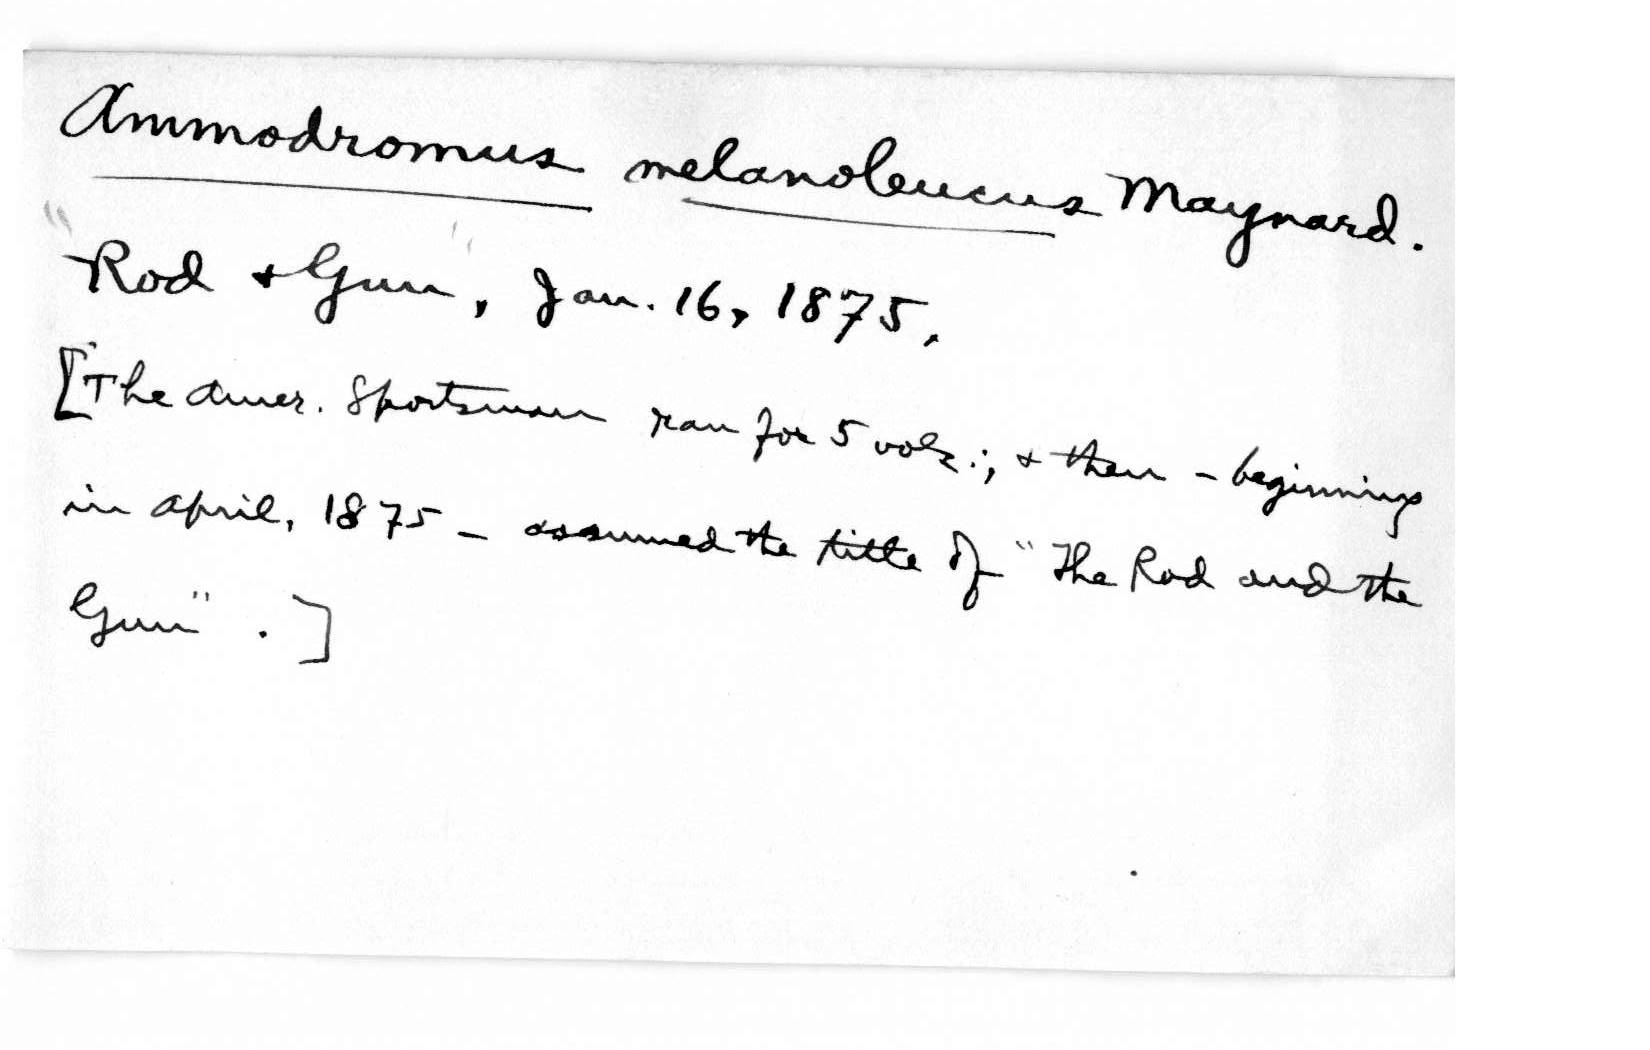 Ammodromus melanoleucus Maynard.
"Rod & Gun", Jan. 16, 1875.
[The Amer. Sportsman ran for 5 vols.; & then - beginning
in April, 1875 - assumed the title of "The Rod and the
Gun".]